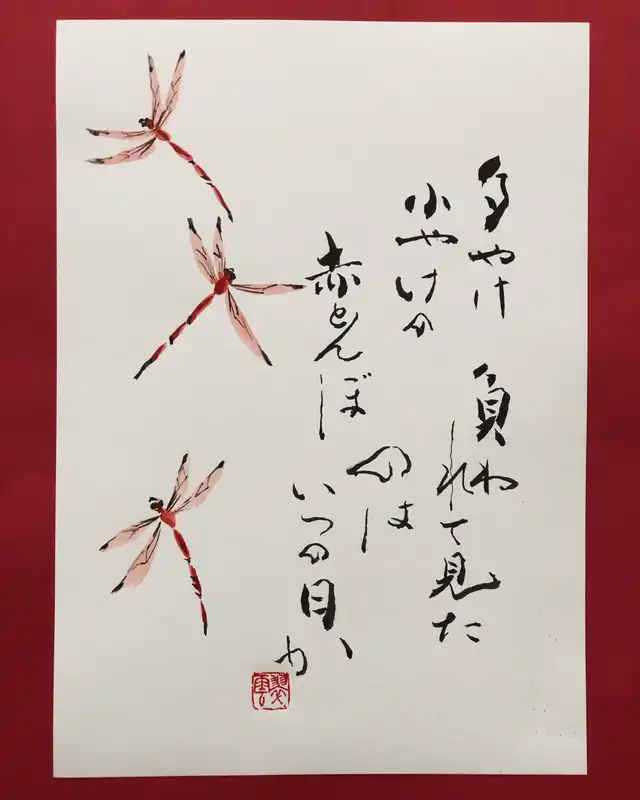 夕やけ
小やけの
赤とんぼ
負わ
れて見た
のは
いつの日か